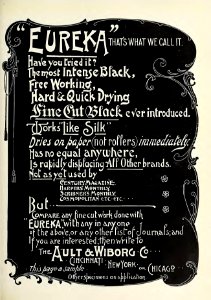 "EUREKA" THAT'S WHAT WE CALL IT.
Have you tried it?
The most Intense Black,
Free Working,
Hard & Quick Drying
Fine Cut Black ever introduced.
"Works Like Silk"
Dries on paper (not rollers) immediately,
Has no equal anywhere,
Is rapidly displacing All Other brands.
Not as yet used by
CENTURY MAGAZINE.
HARPER'S MONTHLY.
SCRIBNER'S MONTHLY.
COSMOPOLITAN ETC. ETC.
But
COMPARE any fine cut work done with
EUREKA with any in any one
of the above, or any other list of Journals; and
if you are interested, then write to
THE AULT & WIBORG Co.
CINCINNATI
NEW YORK.
CHICAGO.
This page a sample.
Other specimens on application